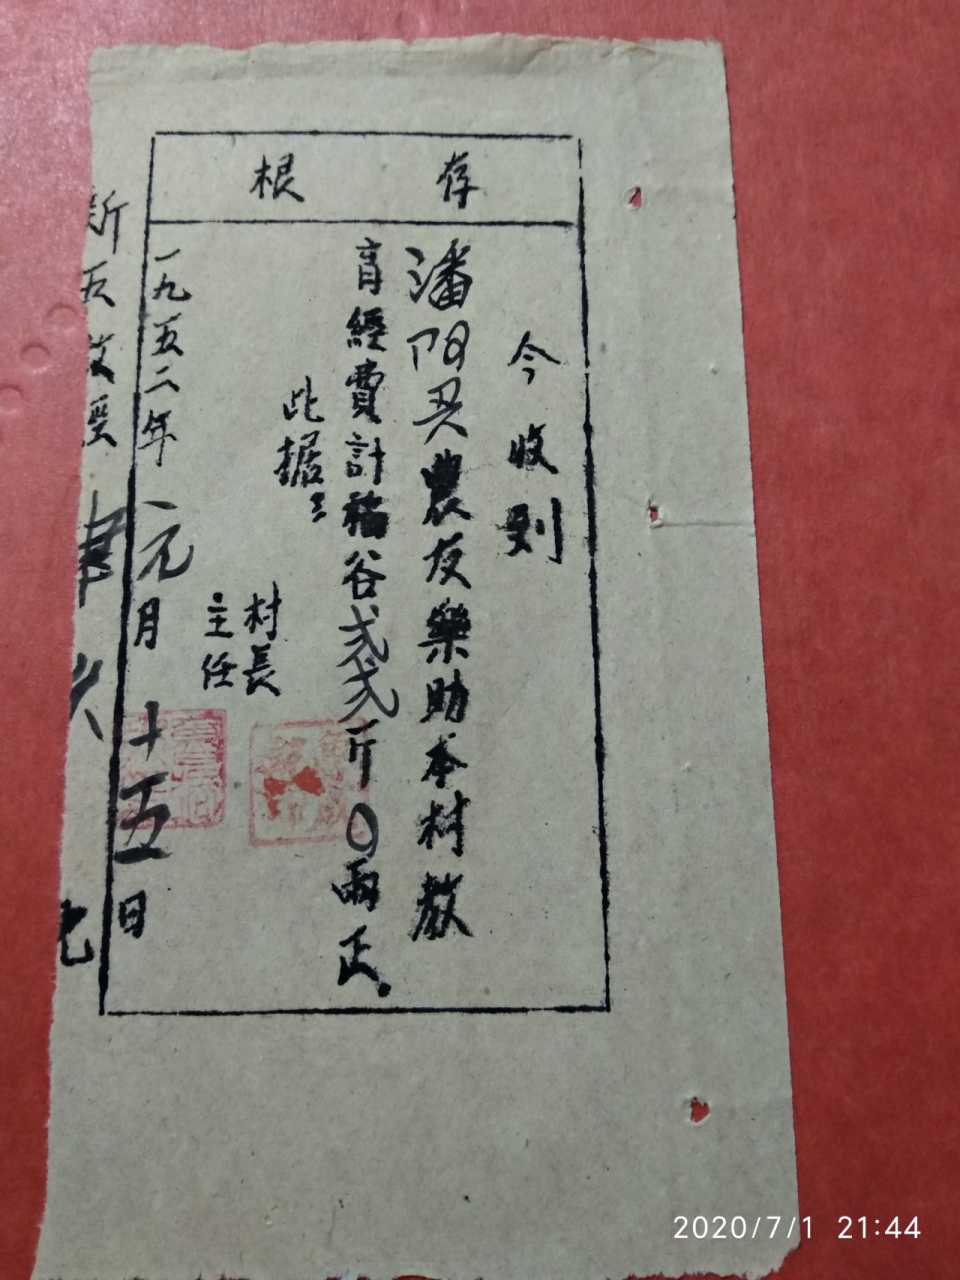 存根
今收到
潘阳農友樂助本村教
育經費計稻谷弍弍斤〇兩正。
此据
村長
主任
一九五二年元月十五日
2020/7/1 21:44